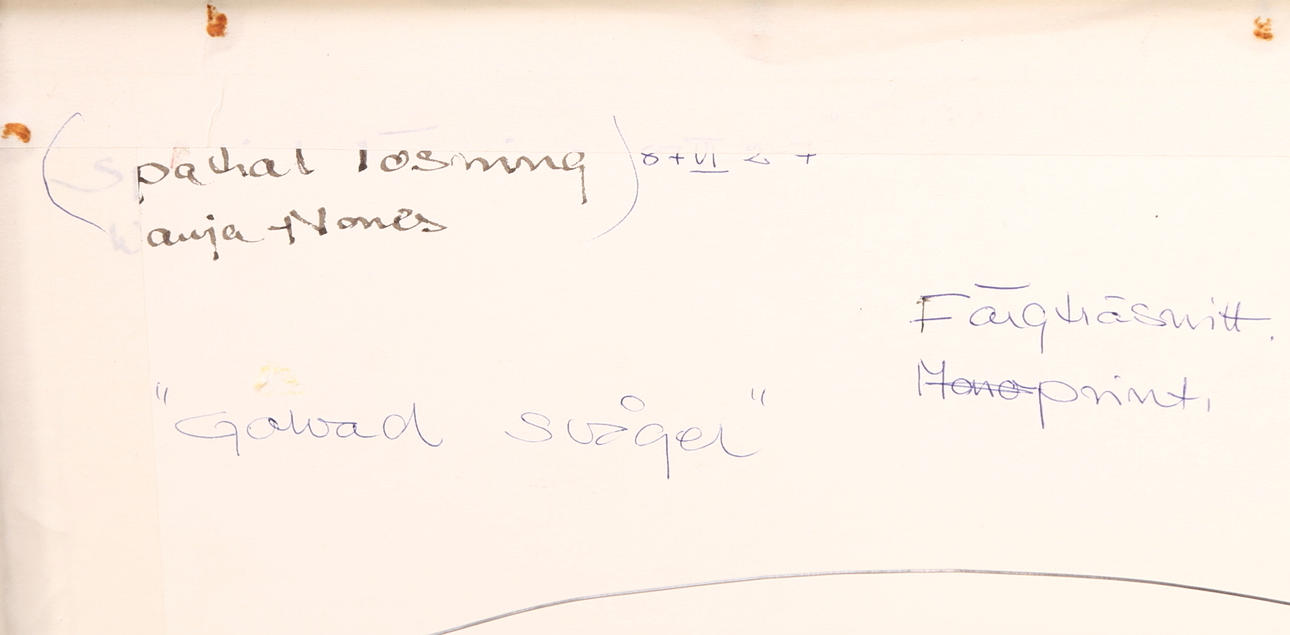 (Spatial lösning)
Wanja
Färgträsnitt.
Monoprint.
"Gåvad svåger"